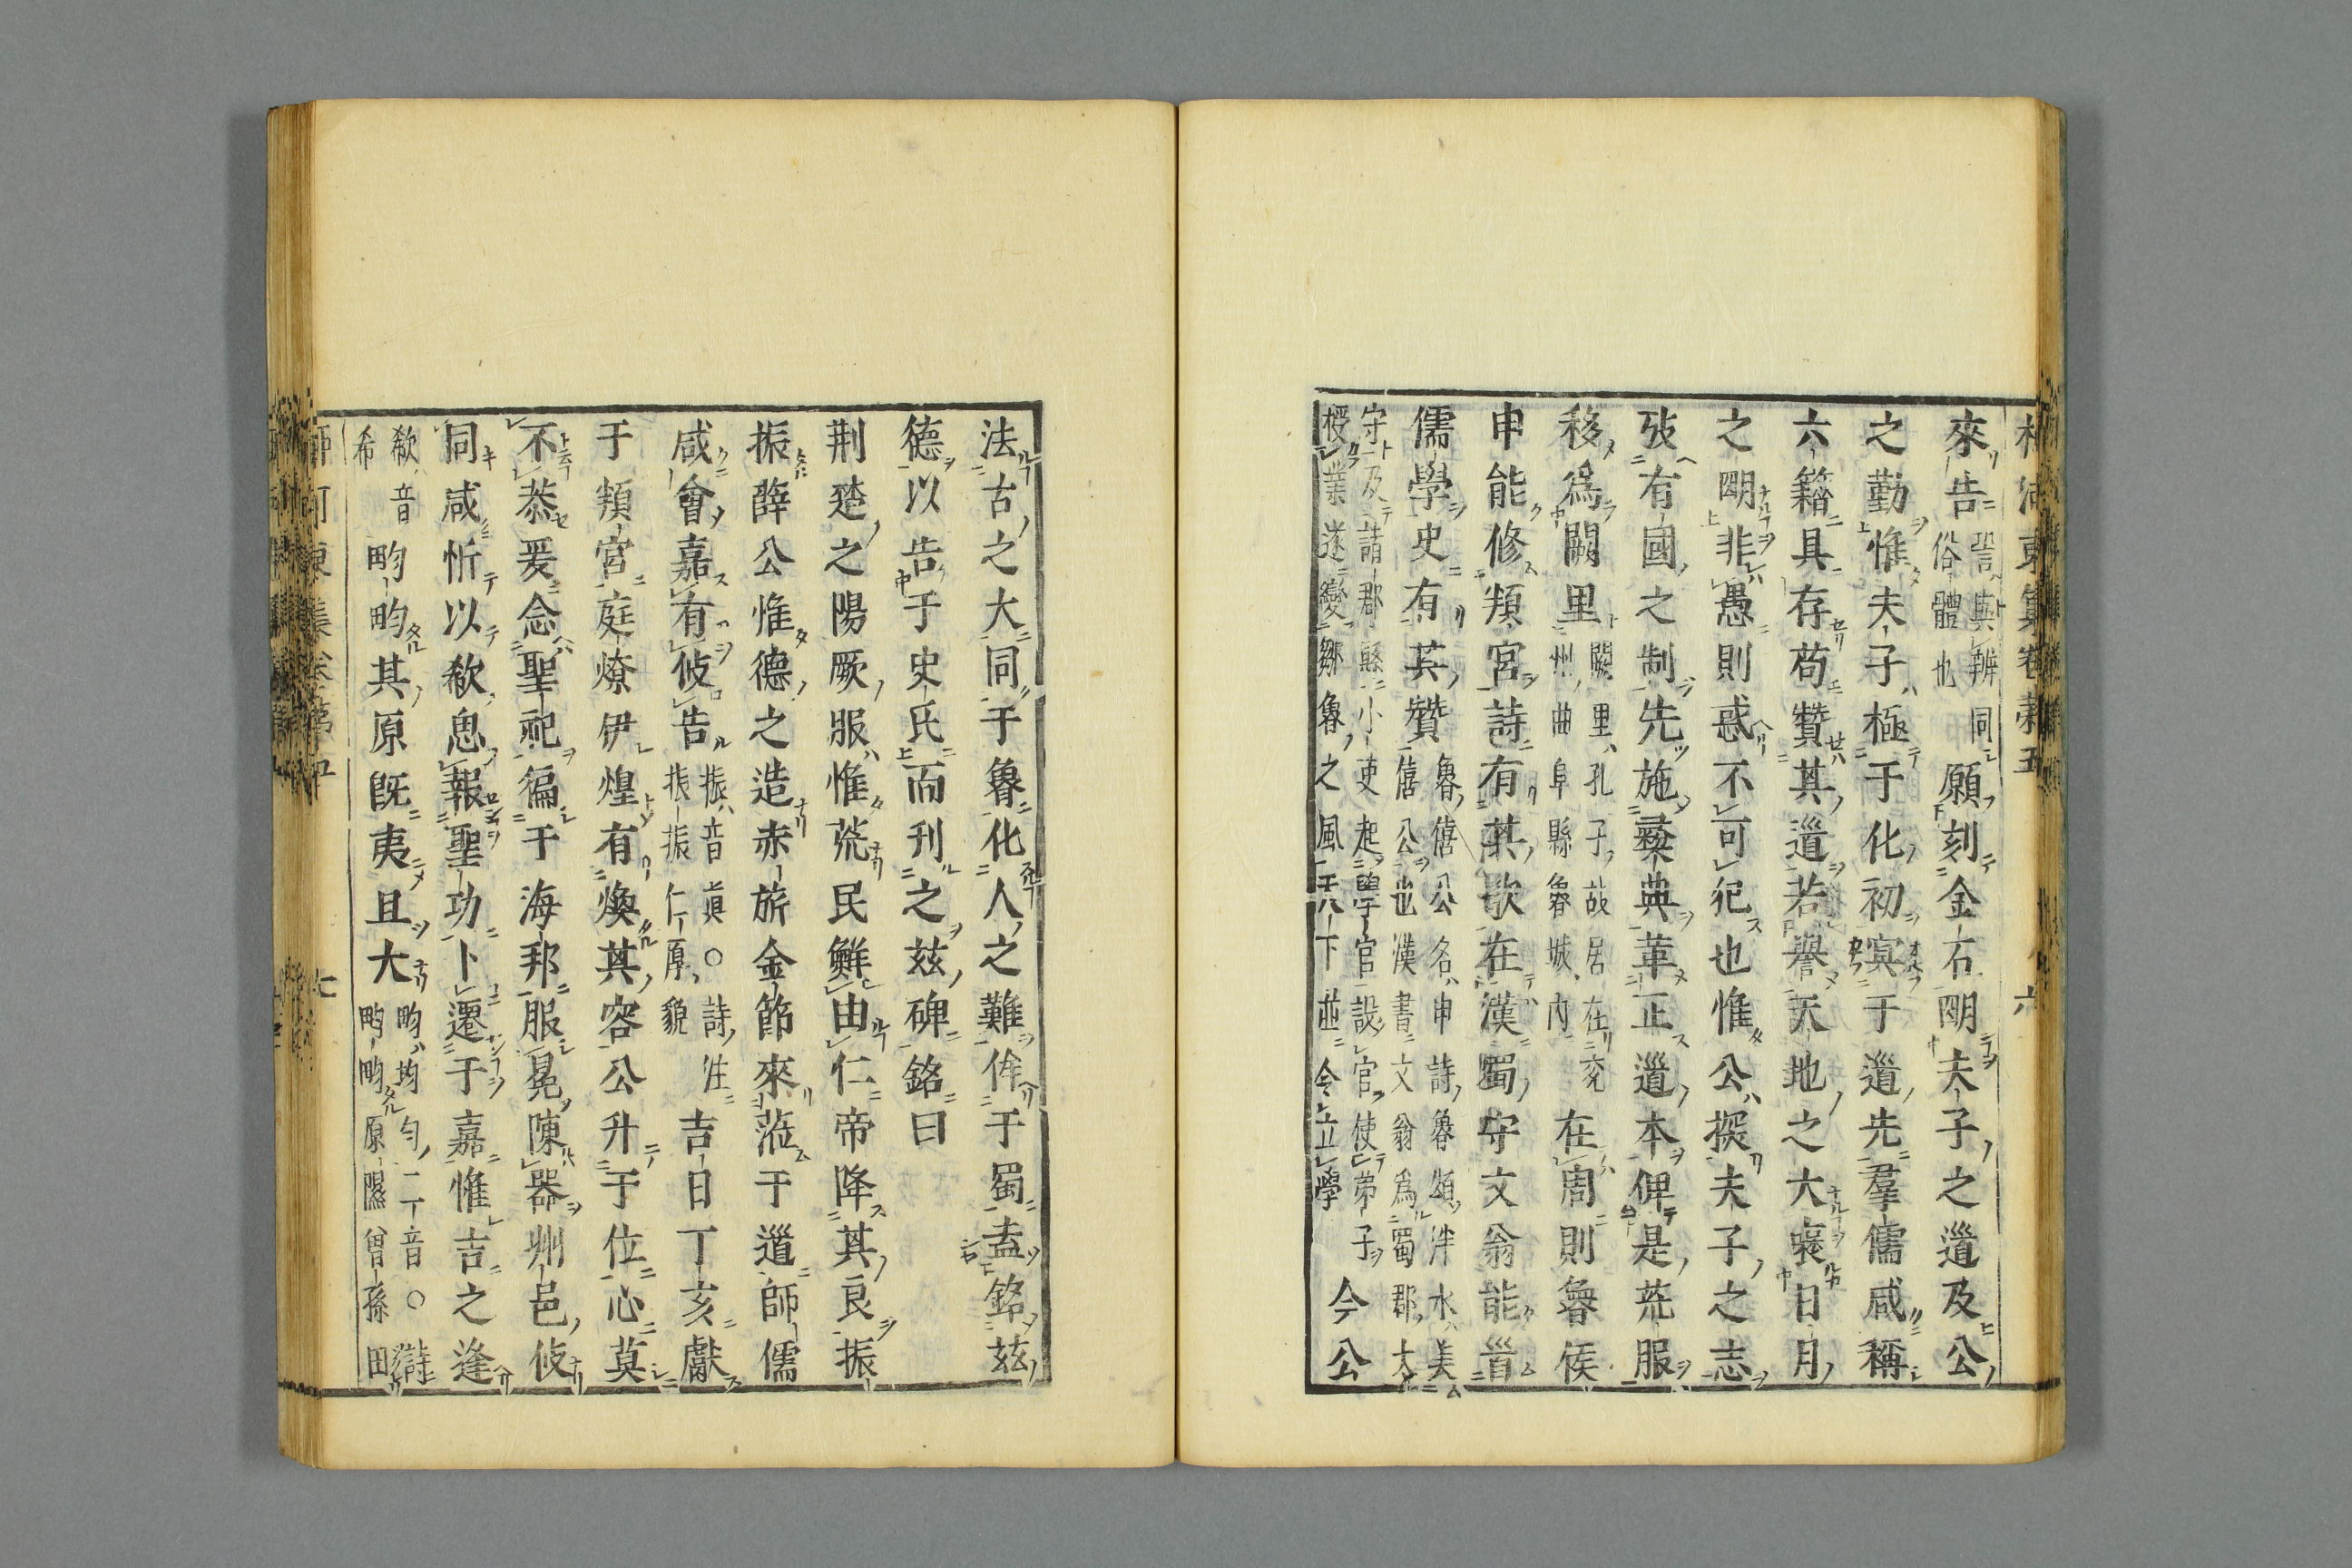 來告
誾與辨同
俗體也
願刻金石明夫子之道及公
之勤惟夫子極于化初冥于道先羣儒咸稱
六籍具存苟贊其道若譽天地之大褒日月
之明非愚則惑不可犯也惟公探夫子之志
攷有國之制先施彝典革正道本俾是荒服
移爲闕里
闕里ハ孔子故居在兗
州曲阜縣魯城內
在周則魯侯
申能修頖宮詩有其歌在漢蜀守文翁能首
儒學史有其贊
魯僖公名申詩魯頌泮水美
僖公也漢書文翁爲蜀郡太
守及詣郡縣小吏起學官設官使弟子
授業遂變鄒魯之風天下並令立學
今公
法古之大同于魯化人之難侔于蜀盍銘兹
德以告于史氏而刊之兹碑銘曰
荆楚之陽厥服惟荒民鮮由仁帝降其良振
振薛公惟德之造赤旂金節來莅于道師儒
咸會嘉有攸告
振音眞○詩注
振振仁厚貌
吉日丁亥獻
于頖宮庭燎伊煌有煥其容公升于位心莫
不恭爰念聖祀徧于海邦服冕陳器州邑攸
同咸忻以欷思報聖功卜遷于嘉惟吉之逢
欷音
希
畇畇其原既夷且大
畇均勻二音○詩
畇畇原隰曾孫田
七